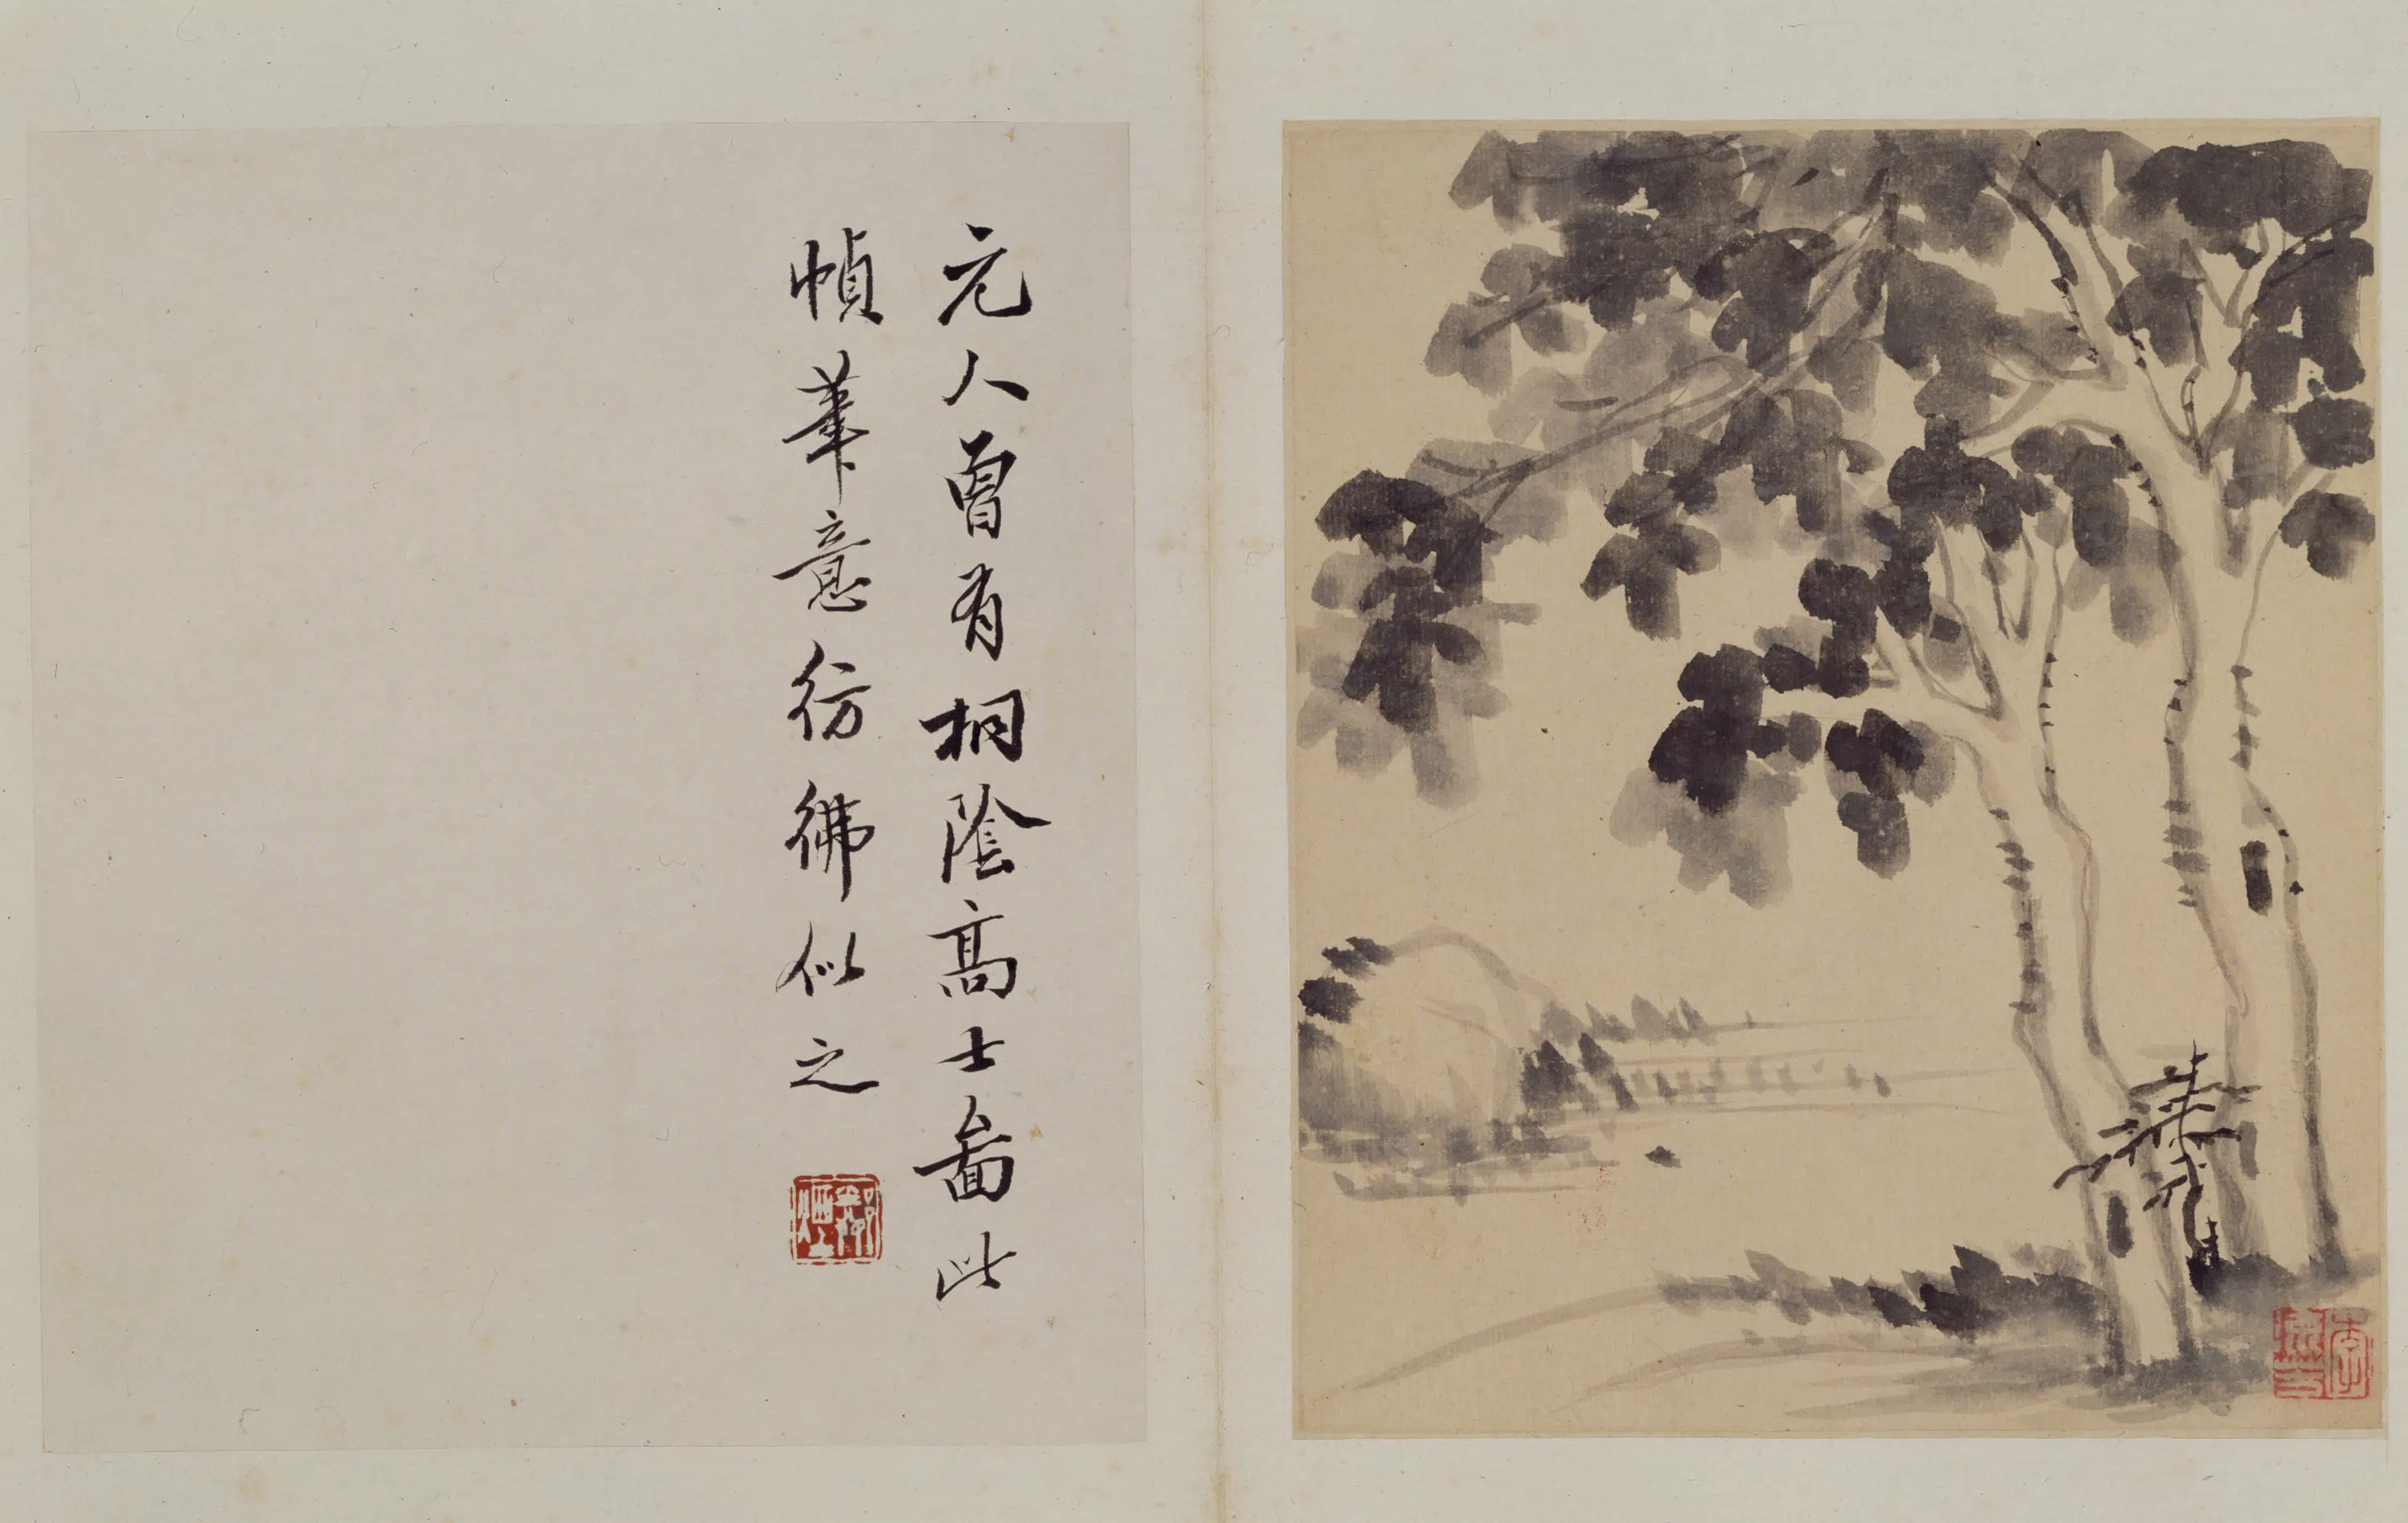 元人曾有桐陰高士啚此
幀筆意彷彿似之